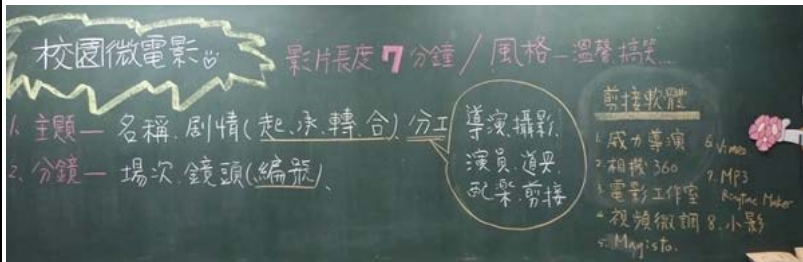 校園微電影
影片長度7分鐘/風格-溫馨.搞笑...
1.主題—名稱.劇情(起、承、轉、合).分工
2.分鏡—場次.鏡頭(編號)、
導演.攝影.
演員.道具.
配樂.剪接
剪接軟體
1.威力導演
2.相機360
3.電影工作室
4.視頻微調
5.Magisto.
6.Vimeo
7.MP3
Ringtone Maker
8.小影